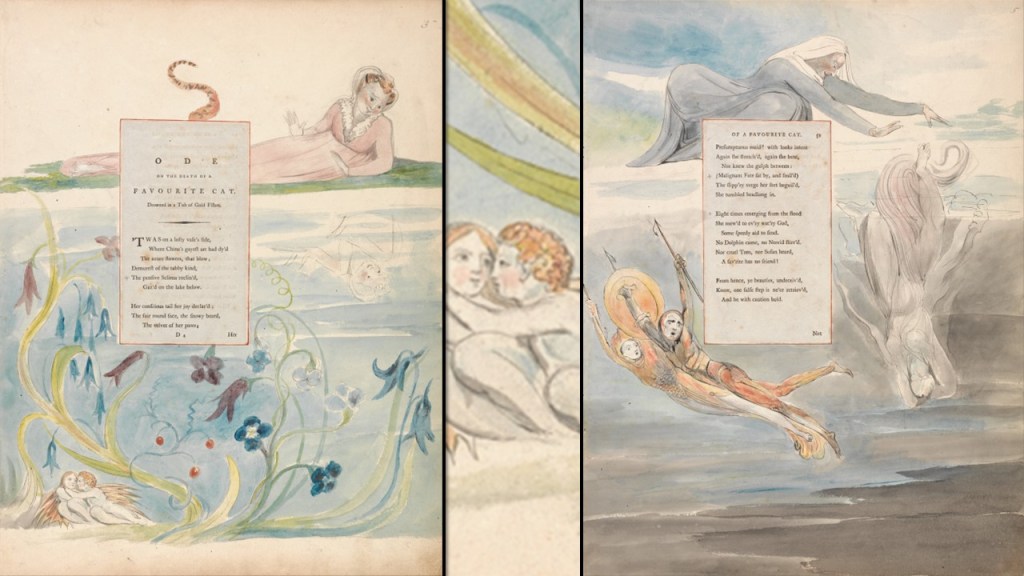 ODE
ON THE DEATH OF A
FAVOURITE CAT,
Drowned in a Tub of Gold Fishes.
'TWAS on a lofty vase's side,
Where China's gayest art had dy'd
The azure flowers, that blow;
Demurest of the tabby kind,
The pensive Selima reclin'd,
Gaz'd on the lake below.
Her conscious tail her joy declar'd;
The fair round face, the snowy beard,
The velvet of her paws,
D 4 Her
OF A FAVOURITE CAT.
Presumptuous maid! with looks intent
Again she stretch'd, again she bent,
Nor knew the gulph between:
(Malignant Fate sat by, and smil'd)
The slipp'ry verge her feet beguil'd,
She tumbled headlong in.
Eight times emerging from the flood
She mew'd to ev'ry wat'ry God,
Some speedy aid to send.
No Dolphin came, no Nereid stirr'd,
Nor cruel Tom, nor Susan heard,
A fav'rite has no friend!
From hence, ye beauties, undeceiv'd,
Know, one false step is ne'er retriev'd,
And be with caution bold.
Not